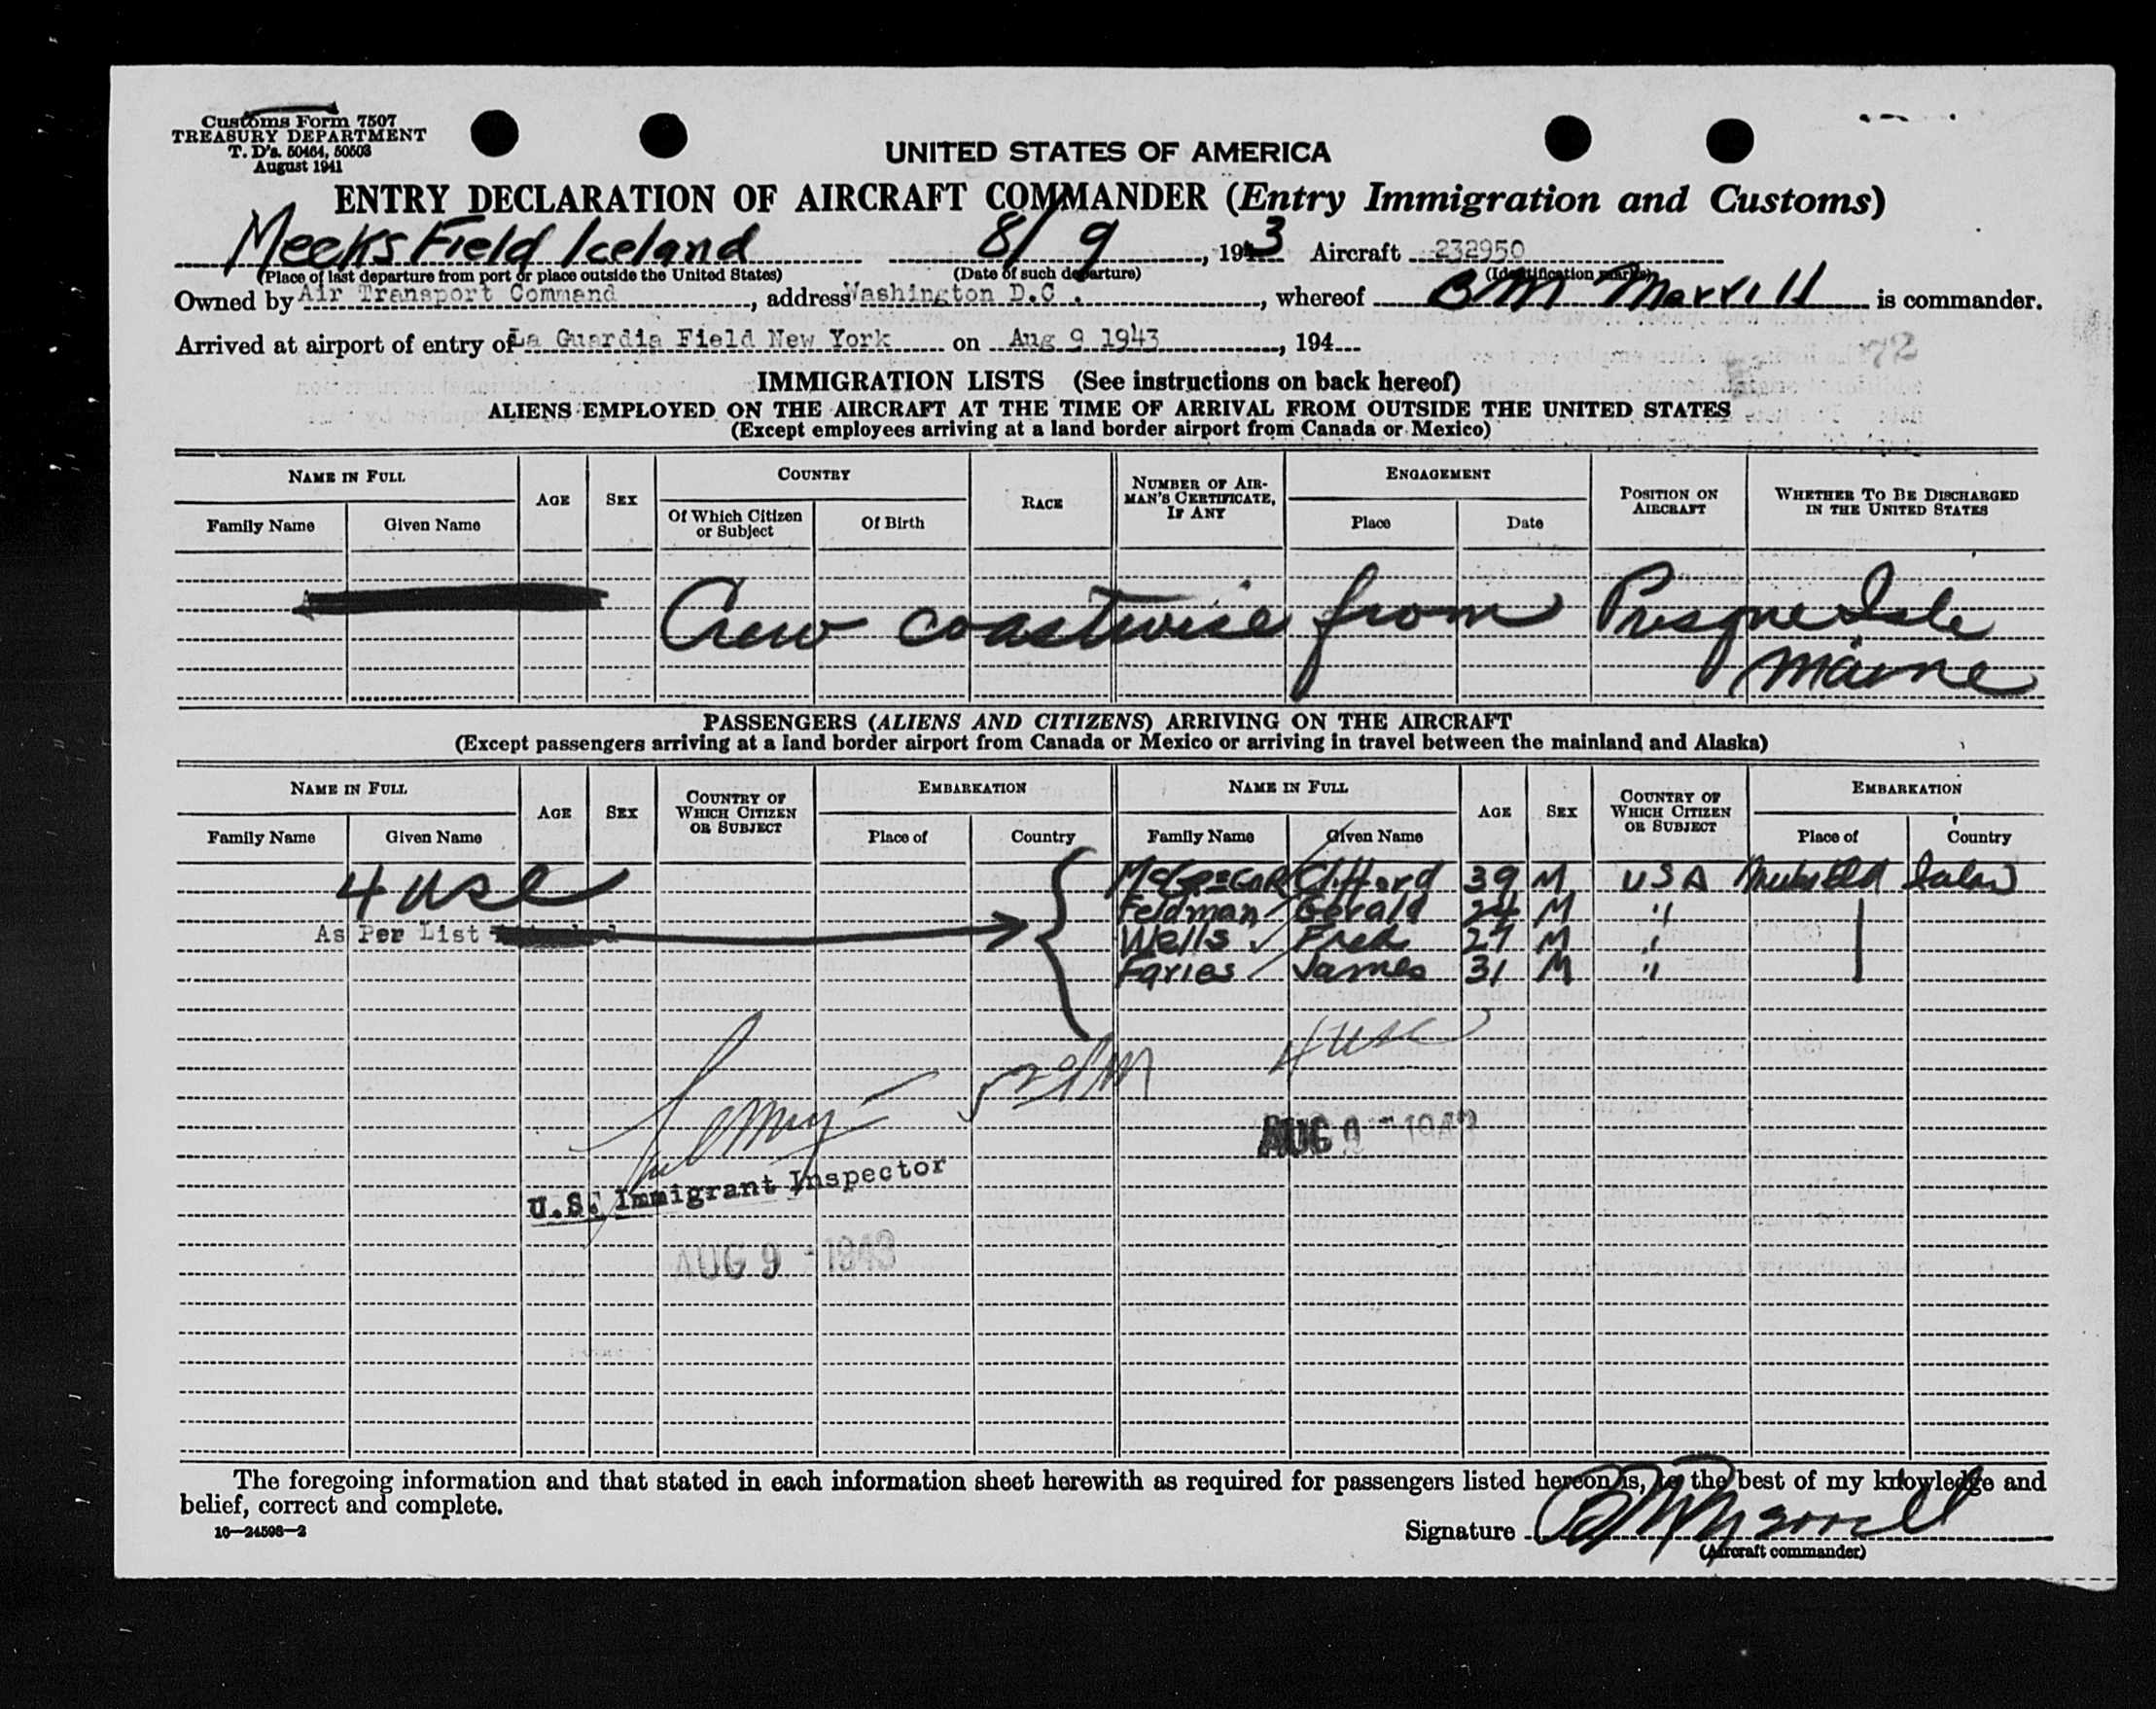 Customs Form 7507
TREASURY DEPARTMENT
T. D's. 50464, 50503
August 1941
UNITED STATES OF AMERICA
ENTRY DECLARATION OF AIRCRAFT COMMANDER (Entry Immigration and Customs)
Meeks Field Iceland 8/9, 1943 Aircraft 232950
(Place of last departure from port or place outside the United States) (Date of such departure) (Identification marks)
Owned by Air Transport Command, address Washington D.C., whereof BM Merrill is commander.
Arrived at airport of entry of La Guardia Field New York on Aug 9 1943, 194
72
IMMIGRATION LISTS (See instructions on back hereof)
ALIENS EMPLOYED ON THE AIRCRAFT AT THE TIME OF ARRIVAL FROM OUTSIDE THE UNITED STATES
(Except employees arriving at a land border airport from Canada or Mexico)
NAME IN FULL AGE SEX COUNTRY RACE NUMBER OF AIRMAN'S CERTIFICATE, IF ANY ENGAGEMENT POSITION ON AIRCRAFT WHETHER TO BE DISCHARGED IN THE UNITED STATES
Family Name Given Name Of Which Citizen or Subject Of Birth Place Date
Crew coastwise from Presque Isle
Maine
PASSENGERS (ALIENS AND CITIZENS) ARRIVING ON THE AIRCRAFT
(Except passengers arriving at a land border airport from Canada or Mexico or arriving in travel between the mainland and Alaska)
NAME IN FULL AGE SEX COUNTRY OF WHICH CITIZEN OR SUBJECT EMBARKATION NAME IN FULL AGE SEX COUNTRY OF WHICH CITIZEN OR SUBJECT EMBARKATION
Family Name Given Name Place of Country Family Name Given Name Place of Country
4 USC McGregor Clifford 39 M USA
Feldman Gerald 24 M "
As Per List Wells Fred 27 M "
Faries James 31 M "
4 USC
AUG 9 - 1943
U.S. Immigrant Inspector
AUG 9 - 1943
The foregoing information and that stated in each information sheet herewith as required for passengers listed hereon is, to the best of my knowledge and
belief, correct and complete.
16—24598—2
Signature BM Merrill
(Aircraft commander)